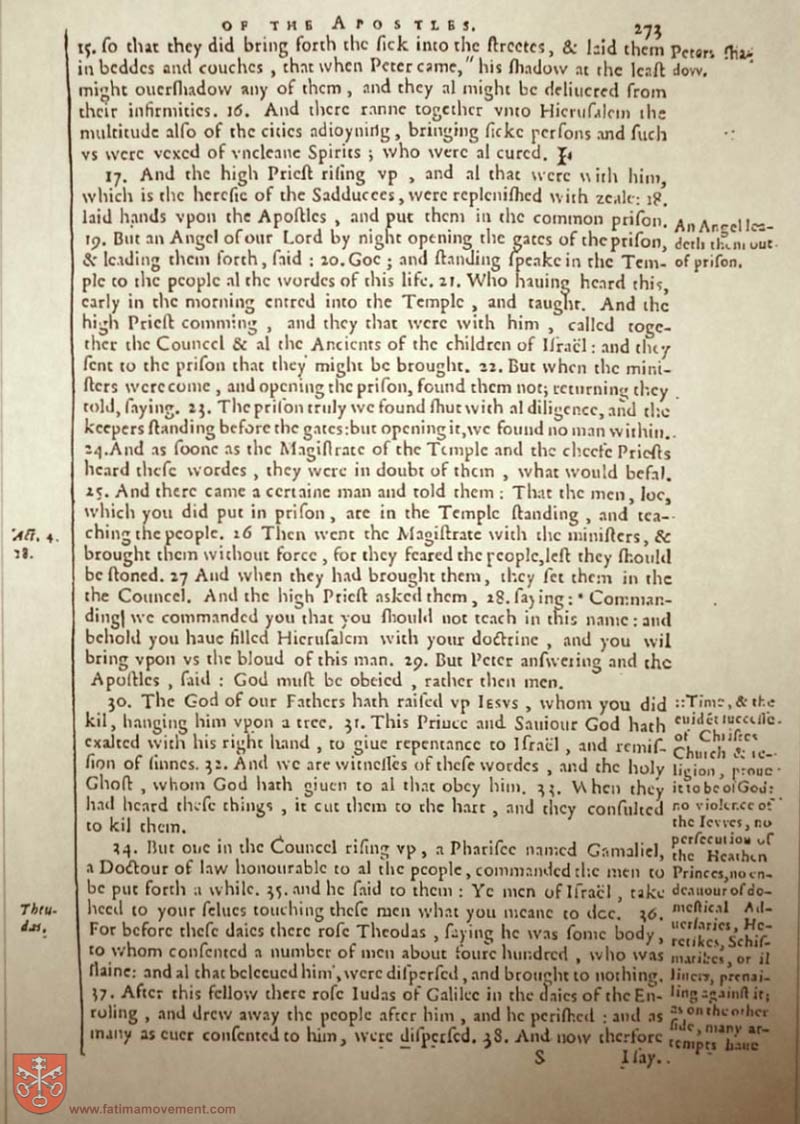 OF THE APOSTLES. 273
15. ſo that they did bring forth the ſick into the ſtreetes, & laid them
in beddes and couches, that when Peter came, " his ſhadow at the leaſt
might ouerſhadow any of them, and they al might be deliuered from
their infirmities. 16. And there ranne together vnto Hieruſalem the
multitude alſo of the cities adioyning, bringing ſicke perſons and ſuch
vs were vexed of vncleane Spirits; who were al cured.
17. And the high Prieſt riſing vp, and al that were with him,
which is the hereſie of the Sadducees, were repleniſhed with zeale: 18.
laid hands vpon the Apoſtles, and put them in the common priſon.
19. But an Angel of our Lord by night opening the gates of the priſon,
& leading them forth, ſaid: 20. Goe; and ſtanding ſpeake in the Tem-
ple to the people al the wordes of this life. 21. Who hauing heard this,
early in the morning entred into the Temple, and taught. And the
high Prieſt comming, and they that were with him, called toge-
ther the Councel & al the Ancients of the children of Iſraël: and they
ſent to the priſon that they might be brought. 22. But when the mini-
ſters were come, and opening the priſon, found them not; returning they
told, ſaying. 23. The priſon truly we found ſhut with al diligence, and the
keepers ſtanding before the gates: but opening it, we found no man within.
24. And as ſoone as the Magiſtrate of the Temple and the cheefe Prieſts
heard theſe wordes, they were in doubt of them, what would befal.
25. And there came a certaine man and told them: That the men, loe,
which you did put in priſon, are in the Temple ſtanding, and tea-
ching the people. 26 Then went the Magiſtrate with the miniſters, &
brought them without force, for they feared the people, leſt they ſhould
be ſtoned. 27 And when they had brought them, they ſet them in the
the Councel. And the high Prieſt asked them, 28. ſaying: * Comman-
ding we commanded you that you ſhould not teach in this name: and
behold you haue filled Hieruſalem with your doctrine, and you wil
bring vpon vs the bloud of this man. 29. But Peter anſwering and the
Apoſtles, ſaid: God muſt be obeied, rather then men.
30. The God of our Fathers hath raiſed vp IESVS, whom you did
kil, hanging him vpon a tree. 31. This Prince and Sauiour God hath
exalted with his right hand, to giue repentance to Iſraël, and remiſ-
ſion of ſinnes. 32. And we are witneſſes of theſe wordes, and the holy
Ghoſt, whom God hath giuen to al that obey him. 33. When they
had heard theſe things, it cut them to the hart, and they conſulted
to kil them.
34. But one in the Councel riſing vp, a Phariſee named Gamaliel,
a Doctour of law honourable to al the people, commanded the men to
be put forth a while. 35. and he ſaid to them: Ye men of Iſraël, take
heed to your ſelues touching theſe men what you meane to doe. 36.
For before theſe daies there roſe Theodas, ſaying he was ſome body,
to whom conſented a number of men about foure hundred, who was
ſlaine: and al that beleeued him, were diſperſed, and brought to nothing.
37. After this fellow there roſe Iudas of Galilee in the daies of the En-
roling, and drew away the people after him, and he periſhed: and as
many as euer conſented to him, were diſperſed. 38. And now therfore
S I ſay.
Peters ſha-
dow.
An Angel lea-
deth them out
of priſon.
Act. 4.
18.
::Time, & the
euidẽt ſucceſſe
of Chriſtes
Church & re-
ligion, proue
it to be of God:
no violence of
the Iewes, no
perſecution of
the Heathen
Princes, no en-
deauour of do-
meſtical Ad-
uerſaries, He-
retikes, Schiſ-
matikes, or il
liuers, preuai-
ling againſt it;
as on the other
ſide, many at-
tempts haue
Theu-
das.
www.fatimamovement.com